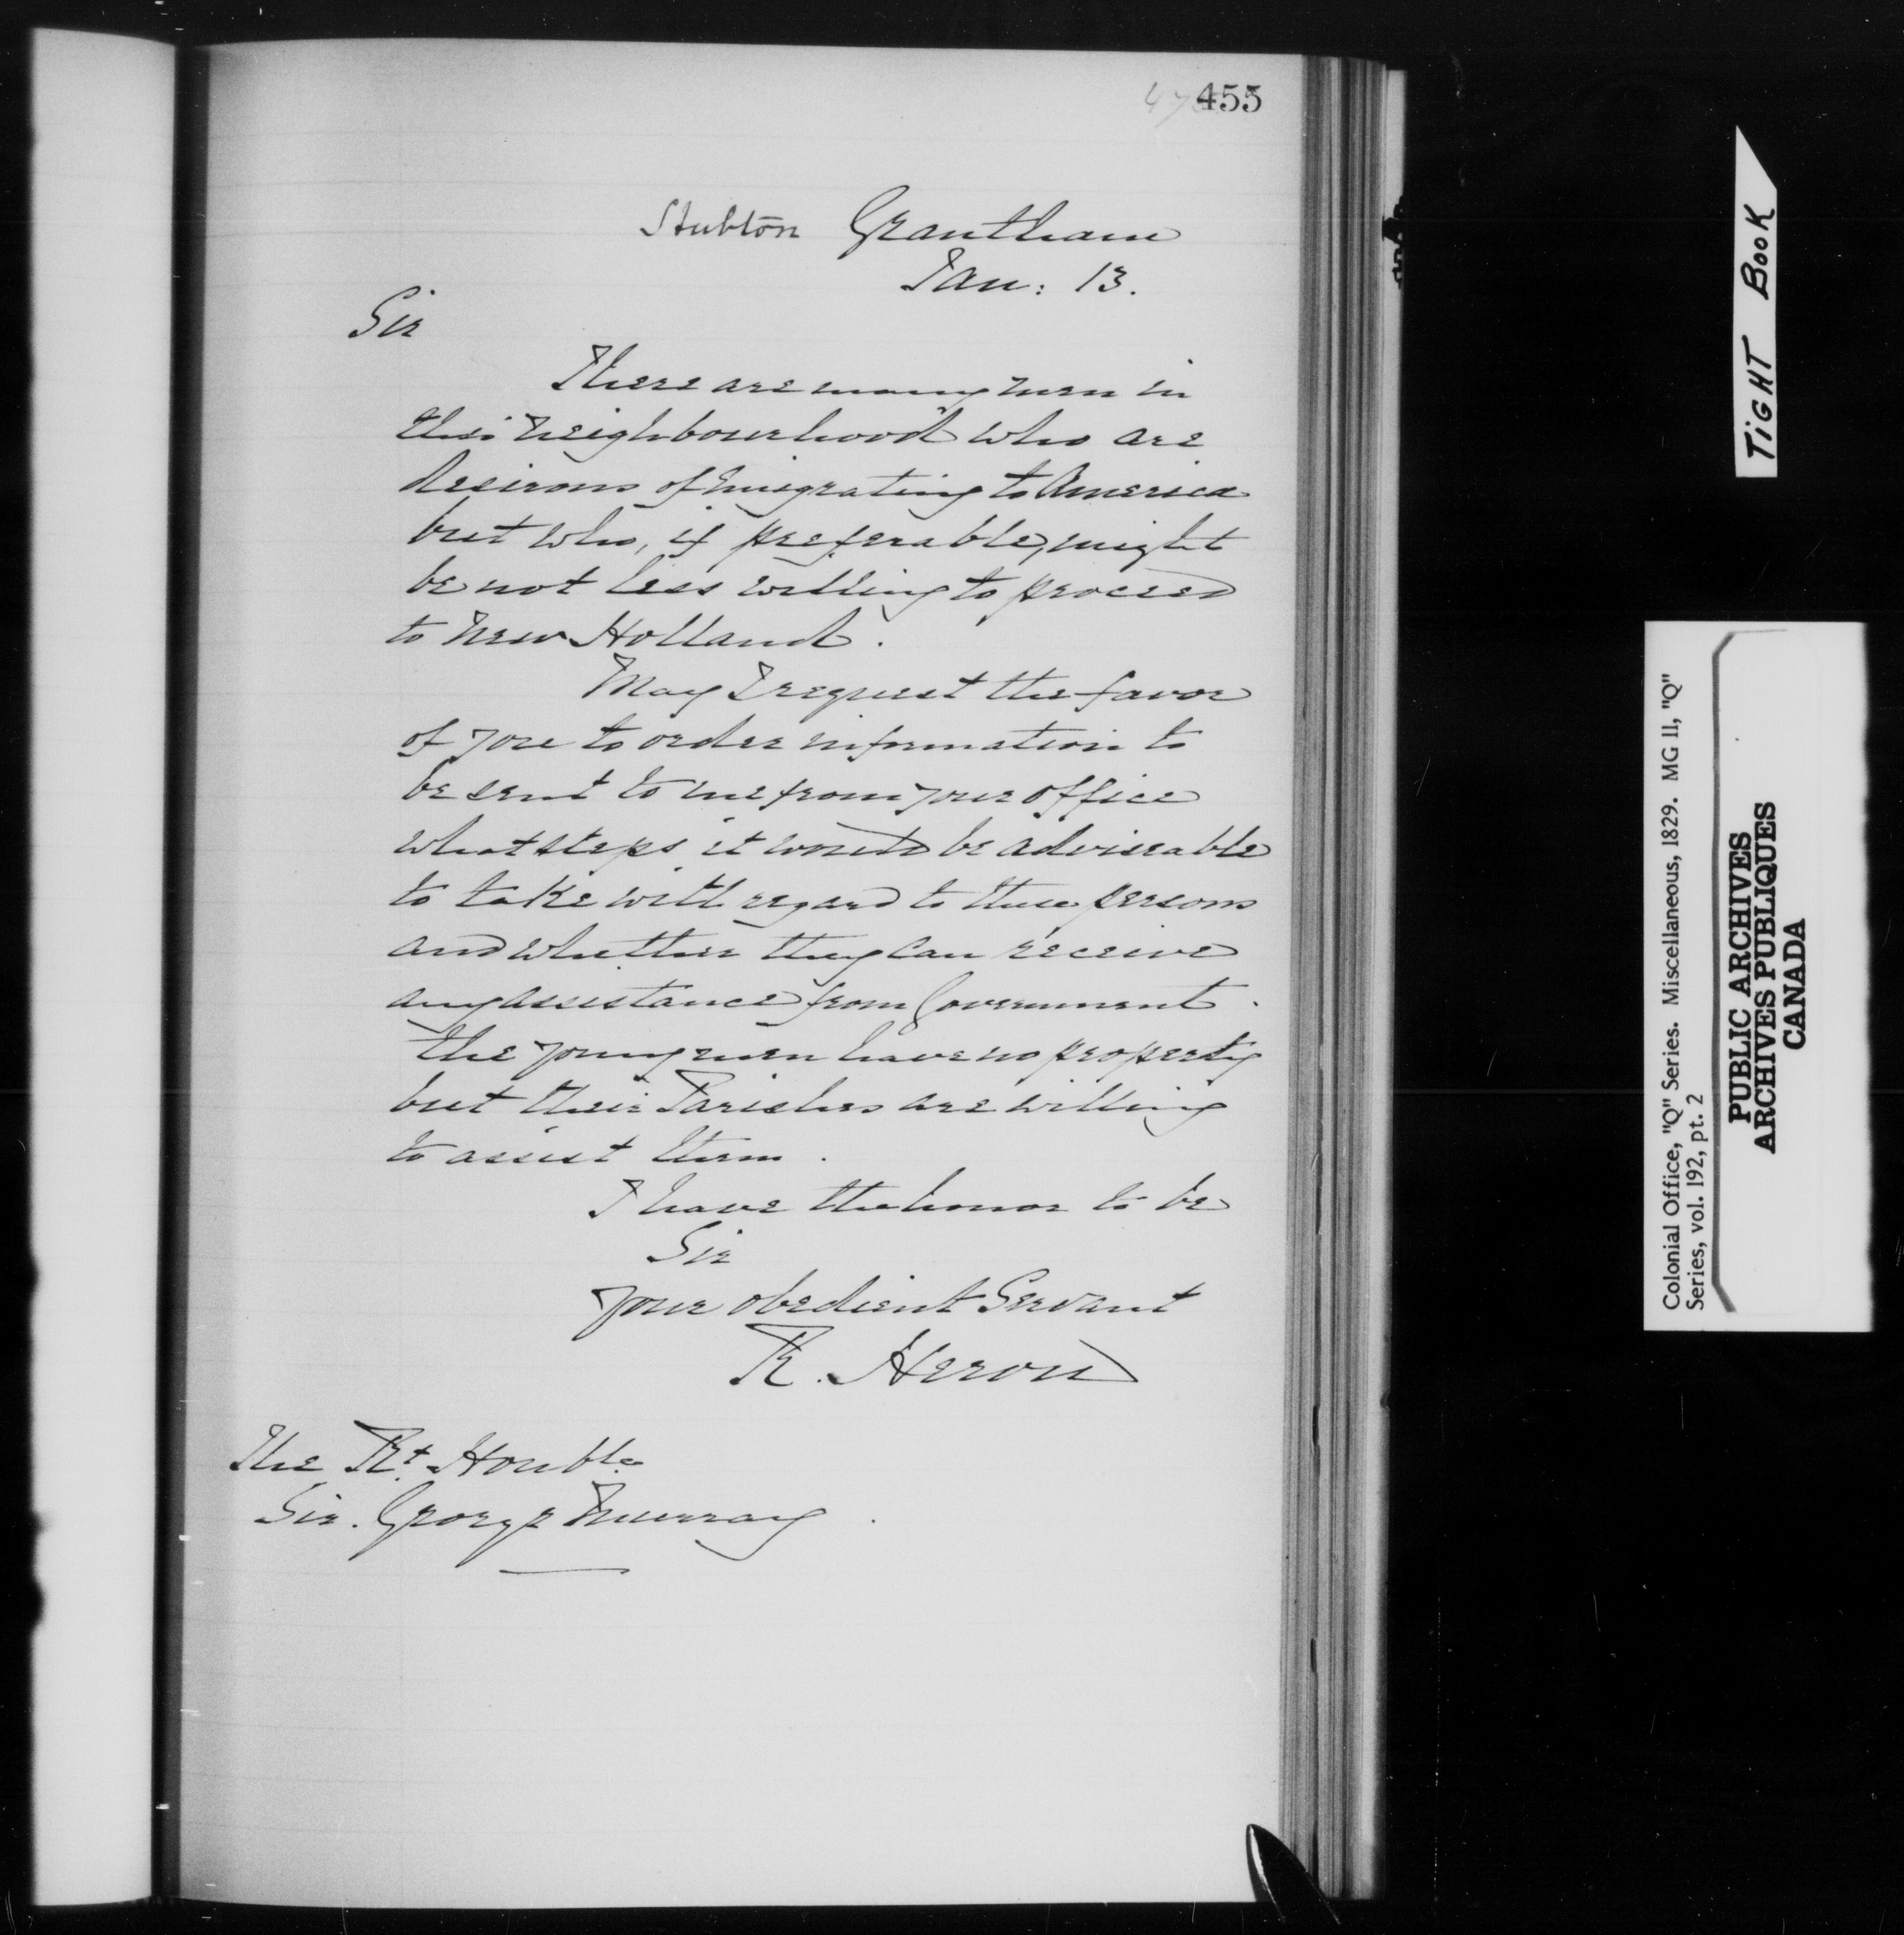 455
Stubton Grantham
Jan: 13.
Sir
There are many men in
this neighbourhood who are
desirous of Emigrating to America
but who, if preferable, might
be not less willing to proceed
to New Holland.
May I request the favor
of you to order information to
be sent to me from your office
what steps it would be adviseable
to take with regard to these persons
and whether they can receive
any assistance from Government.
The young men have no property
but their Parishes are willing
to assist them.
I have the honor to be
Sir
your obedient Servant
R. Heron
The Rt. Honble.
Sir. George Murray.
TIGHT BOOK
Colonial Office, "Q" Series. Miscellaneous, 1829. MG 11, "Q"
Series, vol. 192, pt. 2
PUBLIC ARCHIVES
ARCHIVES PUBLIQUES
CANADA